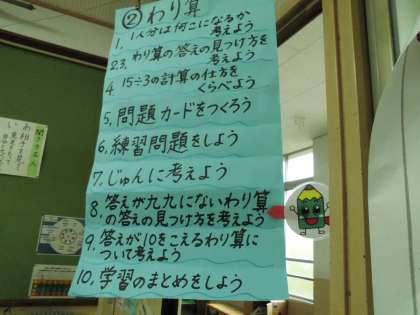 ② わり算
1. 1人分は何こになるか
考えよう
2.3. わり算の答えの見つけ方を
考えよう
4. 15÷3の計算の仕方を
くらべよう
5. 問題カードをつくろう
6. 練習問題をしよう
7. じゅんに考えよう
8. 答えが九九にないわり算
の答えの見つけ方を考えよう
9. 答えが10をこえるわり算に
ついて考えよう
10. 学習のまとめをしよう